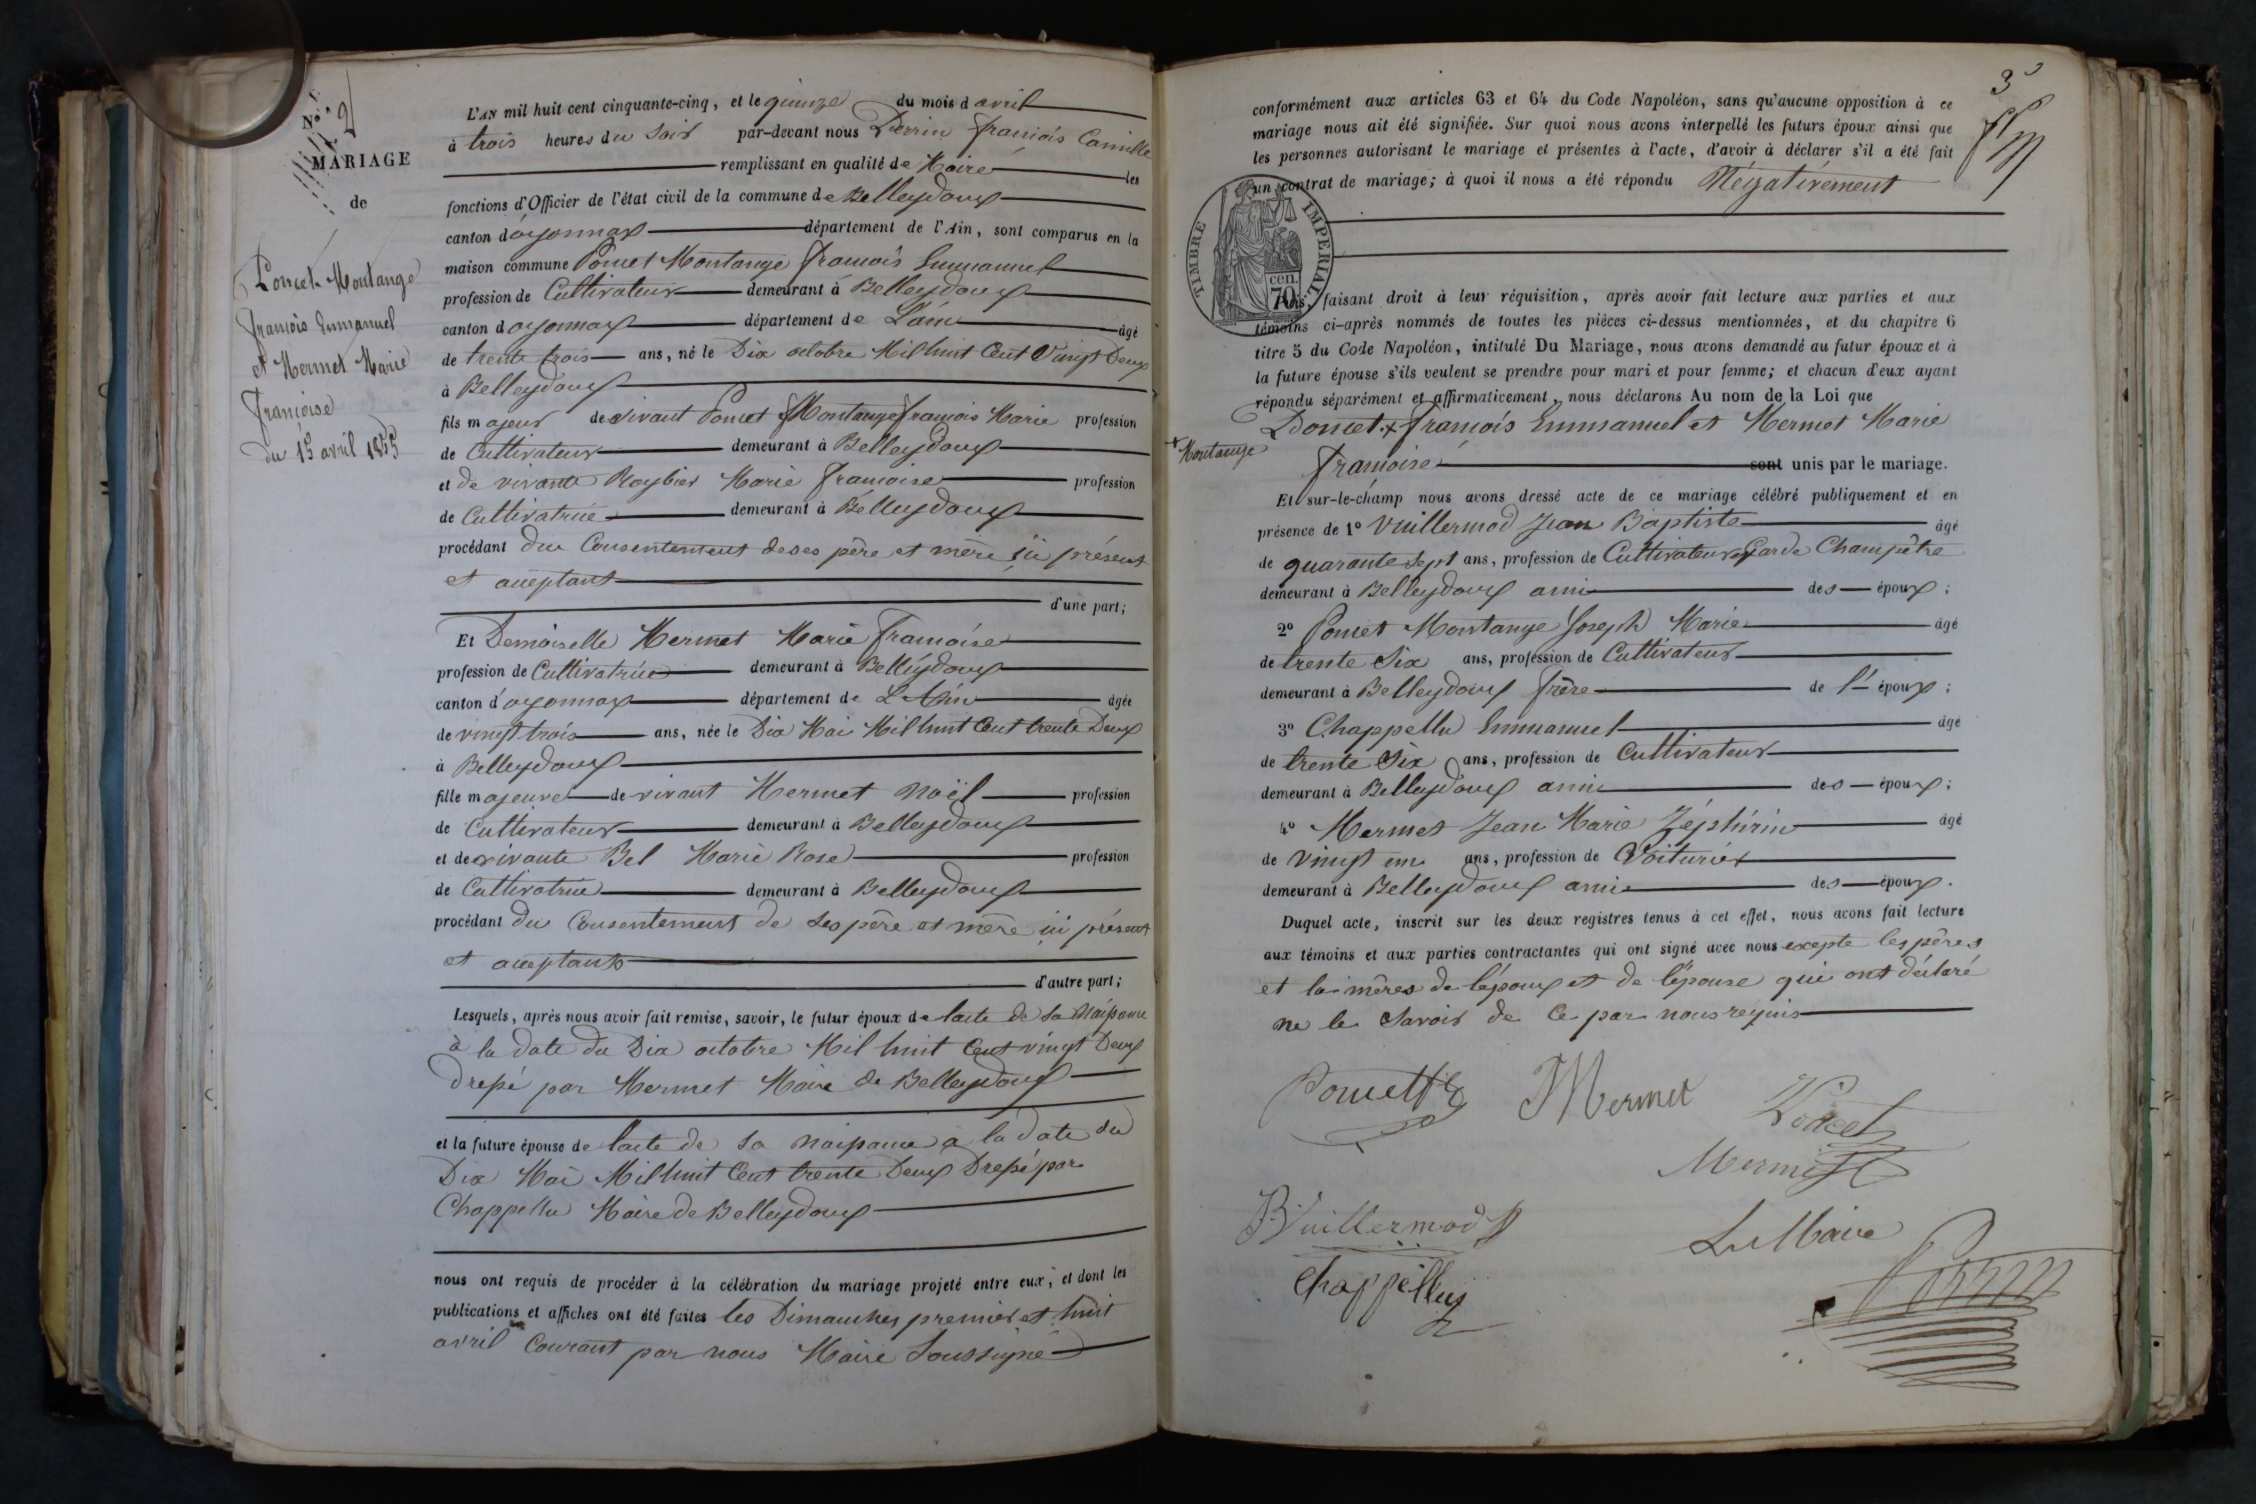 N° 2
MARIAGE
de
Poncet-Montange
François Emmanuel
et Mermet Marie
Françoise
du 15 avril 1855
L'AN mil huit cent cinquante-cinq, et le quinze du mois d avril
à trois heures du soir par-devant nous Perrin François Camille
remplissant en qualité de Maire les
fonctions d'Officier de l'état civil de la commune de Belleydoux
canton d'oyonnax département de l'Ain, sont comparus en la
maison commune Poncet Montange François Emmanuel
profession de Cultivateur demeurant à Belleydoux
canton d oyonnax département de L'ain âgé
de trente trois ans, né le Dix octobre Mil huit Cent Vingt Deux
à Belleydoux
fils majeur de vivant Poncet Montange François Marie profession
de Cultivateur demeurant à Belleydoux
et de vivante Roybier Marie Françoise profession
de Cultivatrice demeurant à Belleydoux
procédant du Consentement de ses père et mère ici présent
et acceptant
d'une part;
Et Demoiselle Mermet Marie Françoise
profession de Cultivatrice demeurant à Belleydoux
canton d'oyonnax département de L'Ain âgée
de vingt trois ans, née le Dix Mai Mil huit Cent trente Deux
à Belleydoux
fille majeure de vivant Mermet Noël profession
de Cultivateur demeurant à Belleydoux
et de vivante Bel Marie Rose profession
de Cultivatrice demeurant à Belleydoux
procédant du Consentement de ses père et mère ici présent
et acceptants
d'autre part;
Lesquels, après nous avoir fait remise, savoir, le futur époux de l'acte de sa Naissance
à la date du Dix octobre Mil huit Cent vingt Deux
Dressé par Mermet Maire de Belleydoux
et la future épouse de l'acte de sa naissance à la date du
Dix Mai Mil huit Cent trente Deux Dressé par
Chappellu Maire de Belleydoux
nous ont requis de procéder à la célébration du mariage projeté entre eux, et dont les
publications et affiches ont été faites les Dimanches premier et huit
avril Courant par nous Maire Soussigné
3
conformément aux articles 63 et 64 du Code Napoléon, sans qu'aucune opposition à ce
mariage nous ait été signifiée. Sur quoi nous avons interpellé les futurs époux ainsi que
les personnes autorisant le mariage et présentes à l'acte, d'avoir à déclarer s'il a été fait
un contrat de mariage; à quoi il nous a été répondu Négativement
TIMBRE IMPERIAL
70 cen.
Nous, faisant droit à leur réquisition, après avoir fait lecture aux parties et aux
témoins ci-après nommés de toutes les pièces ci-dessus mentionnées, et du chapitre 6
titre 5 du Code Napoléon, intitulé Du Mariage, nous avons demandé au futur époux et à
la future épouse s'ils veulent se prendre pour mari et pour femme; et chacun d'eux ayant
répondu séparément et affirmativement, nous déclarons Au nom de la Loi que
Poncet + François Emmanuel et Mermet Marie
+ Montange
Françoise sont unis par le mariage.
Et sur-le-champ nous avons dressé acte de ce mariage célébré publiquement et en
présence de 1° Vuillermod Jean Baptiste âgé
de quarante sept ans, profession de Cultivateur et Garde Champêtre
demeurant à Belleydoux ami des époux;
2° Poncet Montange Joseph Marie âgé
de trente Six ans, profession de Cultivateur
demeurant à Belleydoux frère de l' époux;
3° Chappellu Emmanuel âgé
de trente Six ans, profession de Cultivateur
demeurant à Belleydoux ami des époux;
4° Mermet Jean Marie Zéphirin âgé
de vingt un ans, profession de Voiturier
demeurant à Belleydoux ami des époux.
Duquel acte, inscrit sur les deux registres tenus à cet effet, nous avons fait lecture
aux témoins et aux parties contractantes qui ont signé avec nous excepté les pères
et la mères de l'époux et de l'épouse qui ont déclaré
ne le Savoir de Ce par nous requis
Poncet Mermet Poncet
Mermet
Vuillermod
Le Maire
Chappellu
Perrin